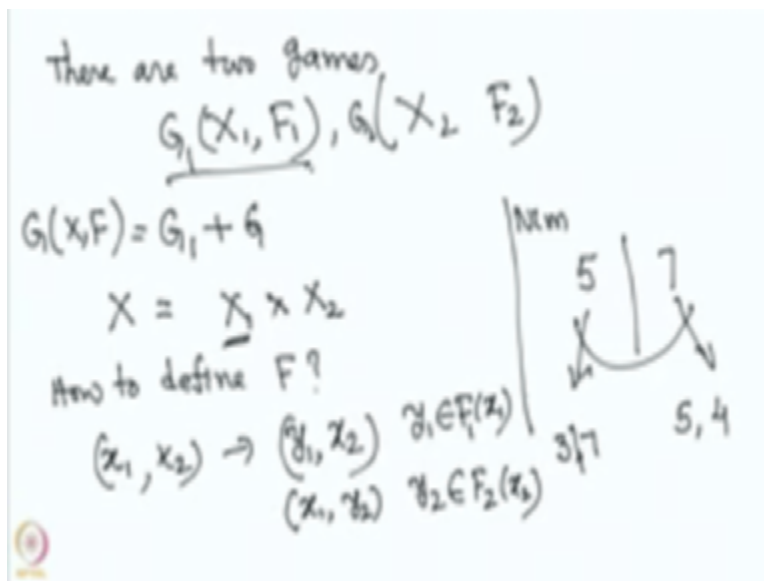 There are two games
G₁(X₁, F₁), G(X₂ F₂)
G(X,F) = G₁ + G
X = X₁ × X₂
How to define F?
(x₁, x₂) → (y₁, x₂) y₁ ∈ F₁(x₁)
(x₁, y₂) y₂ ∈ F₂(x₂)
Nim
5 | 7
3,7 5, 4